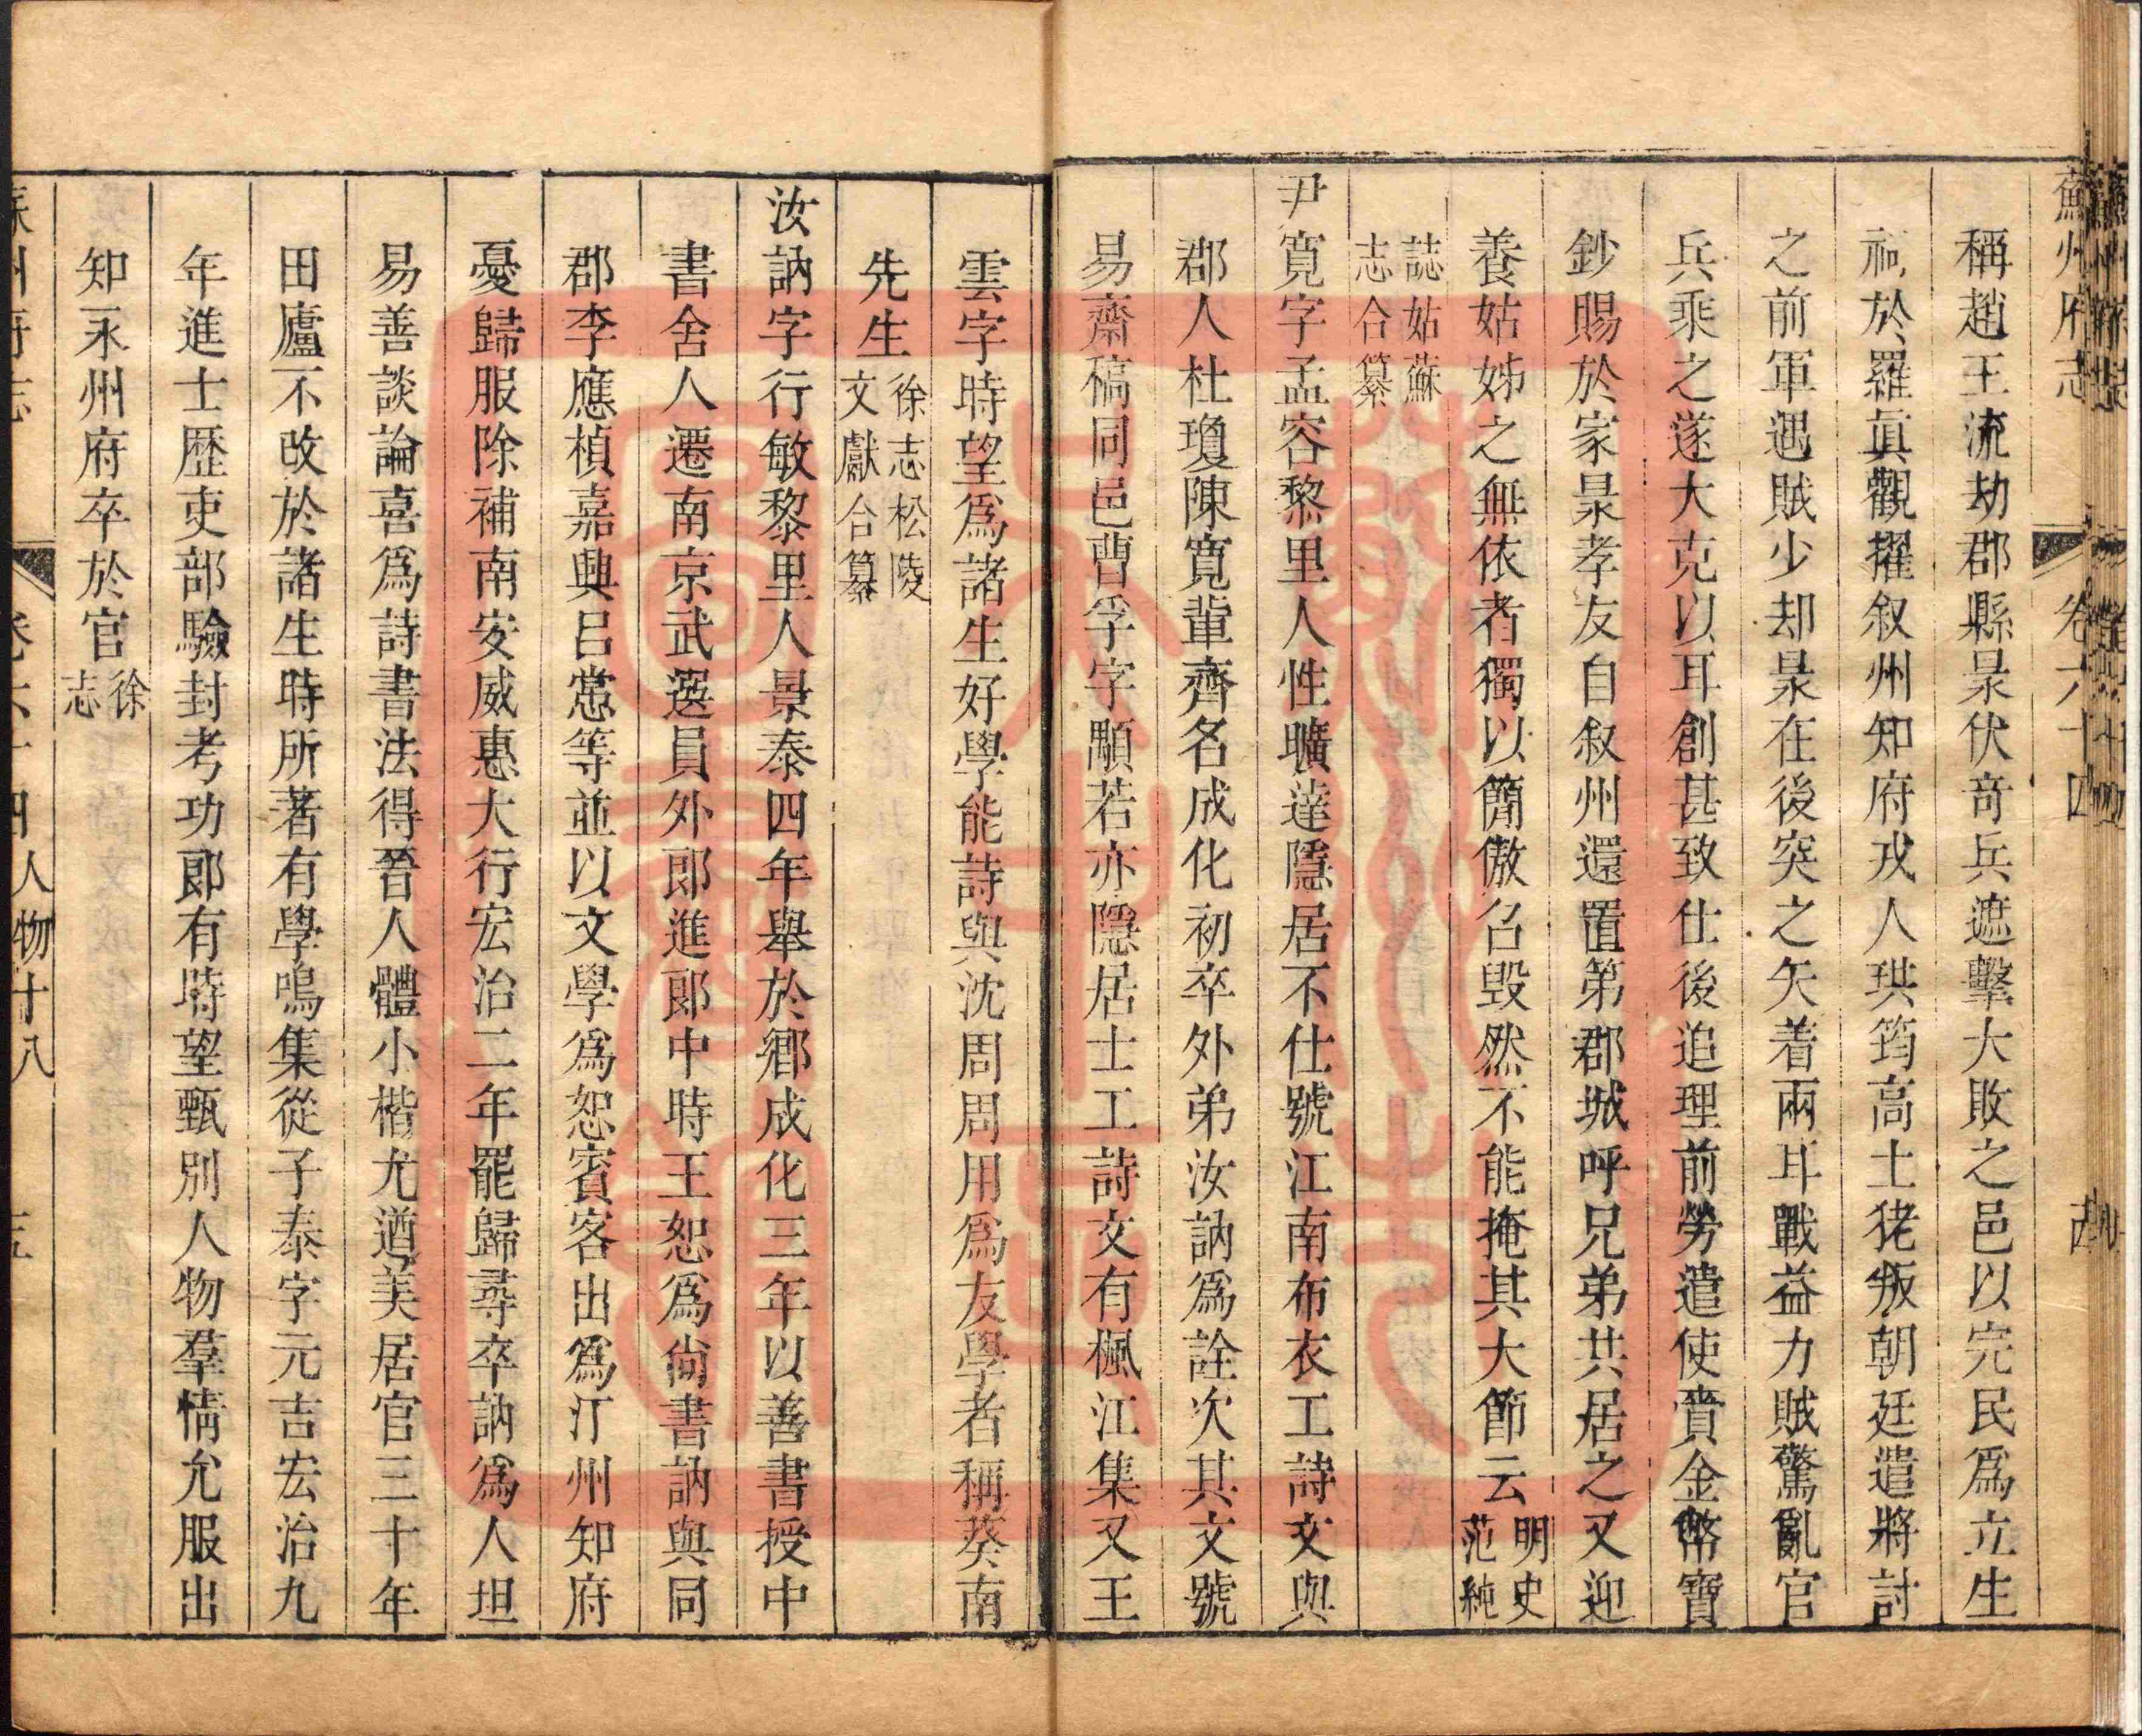 蘇州府志 卷六十四
稱趙王流劫郡縣杲伏奇兵遮擊大敗之邑以完民爲立生
祠於羅眞觀擢叙州知府戎人珙筠高土狫叛朝廷遣將討
之前軍遇賊少却杲在後突之矢着兩耳戰益力賊驚亂官
兵乘之遂大克以耳創甚致仕後追理前勞遣使賫金幣寶
鈔賜於家杲孝友自叙州還置第郡城呼兄弟共居之又迎
養姑姊之無依者獨以簡傲召毀然不能掩其大節云明史范純
誌姑蘇志合纂
尹寬字孟容黎里人性曠達隱居不仕號江南布衣工詩文與
郡人杜瓊陳寬輩齊名成化初卒外弟汝訥爲詮次其文號
易齋稿同邑曹孚字顒若亦隱居士工詩文有楓江集又王
雲字時望爲諸生好學能詩與沈周周用爲友學者稱葵南
先生徐志松陵文獻合纂
汝訥字行敏黎里人景泰四年舉於鄉成化三年以善書授中
書舍人遷南京武選員外郎進郎中時王恕爲尙書訥與同
郡李應楨嘉興呂㦂等並以文學爲恕賓客出爲汀州知府
憂歸服除補南安威惠大行宏治二年罷歸尋卒訥爲人坦
易善談論喜爲詩書法得晉人體小楷尤遒美居官三十年
田廬不改於諸生時所著有學鳴集從子泰字元吉宏治九
年進士歴吏部驗封考功郎有時望甄別人物羣情允服出
知永州府卒於官徐志
人物十八